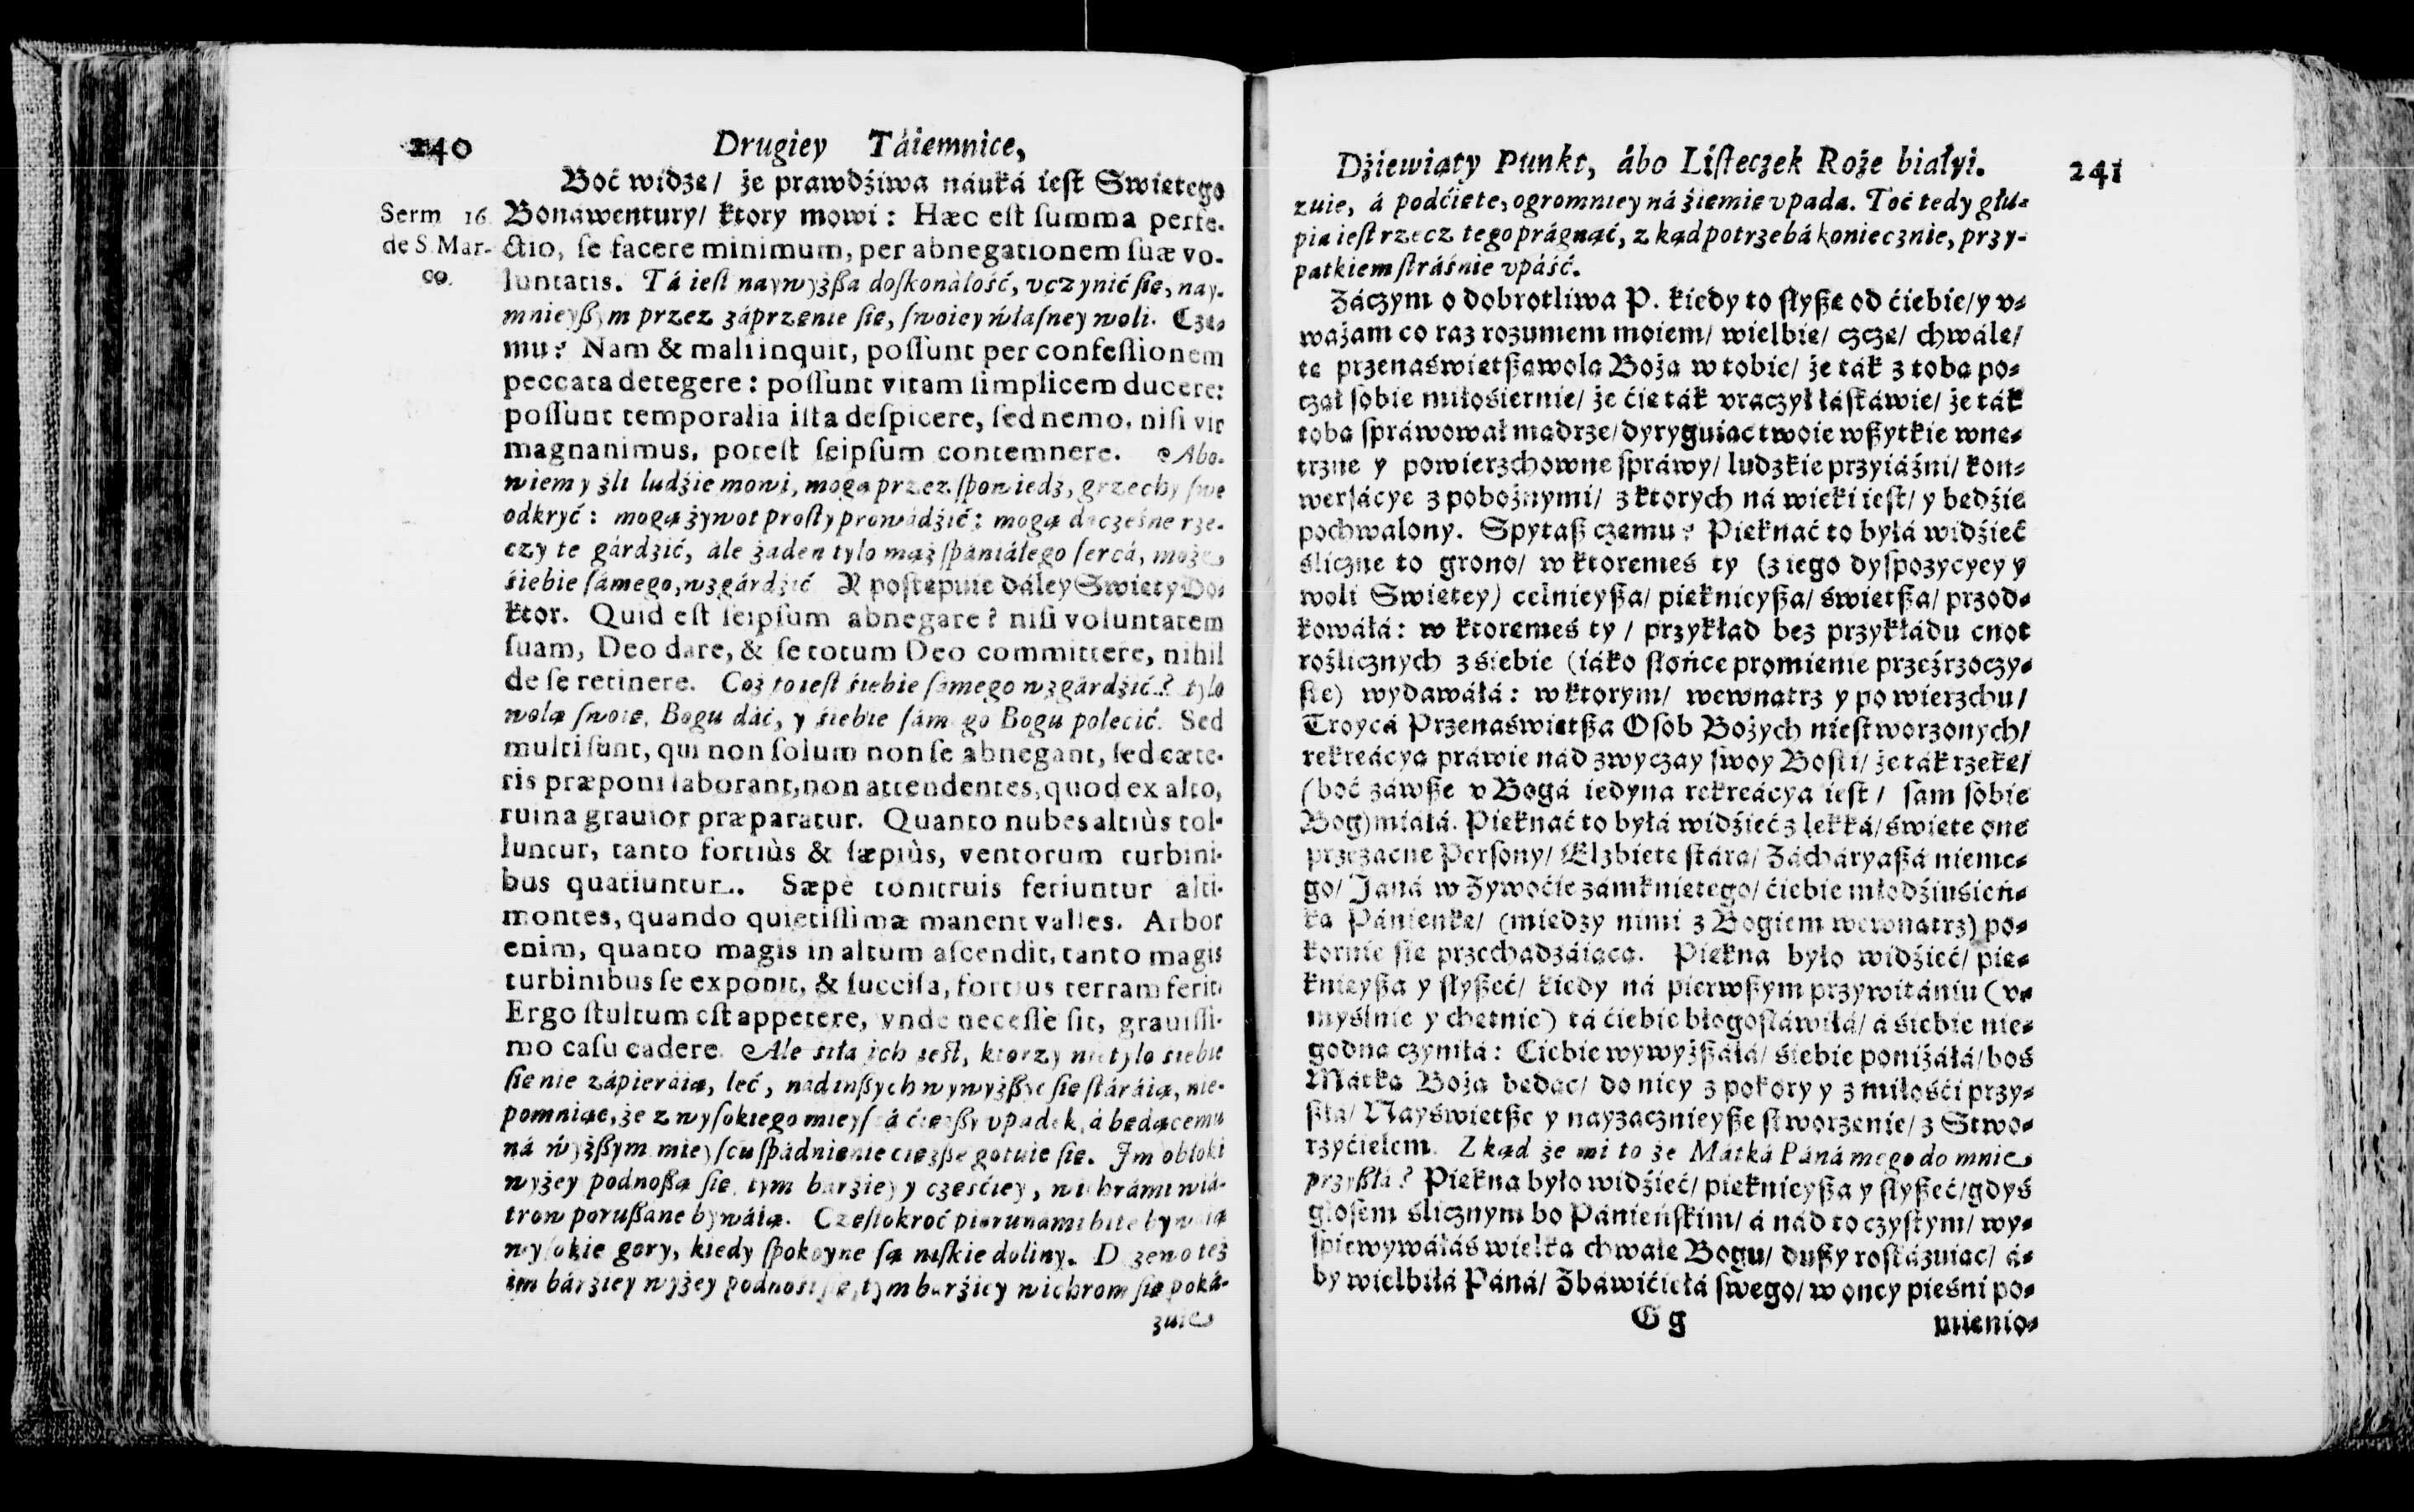 240 Drugiey Táiemnice,
Boć widzę/ że prawdźiwa náuká iest Swiętego
Serm 16. Bonáwentury/ ktory mowi: Hæc est summa perfe-
de S. Mar- ctio, se facere minimum, per abnegationem suæ vo-
co. luntatis. Tá iest naywyżßa doskonáłość, vczynić się, nay-
mnieyßym przez záprzenie się, swoiey własney woli. Cze-
mu? Nam & mali inquit, possunt per confessionem
peccata detegere: possunt vitam simplicem ducere:
possunt temporalia ista despicere, sed nemo, nisi vir
magnanimus, potest seipsum contemnere. Abo-
wiem y źli ludźie mowi, mogą przez spowiedź, grzechy swe
odkryć: mogą żywot prosty prowádźić: mogą docześne rze-
czy te gárdźić, ále żaden tylo mąż spániáłego sercá, może
śiebie sámego, wzgárdźić Y postępuie dáley Swięty Do-
ktor. Quid est seipsum abnegare? nisi voluntatem
suam, Deo dare, & se totum Deo committere, nihil
de se retinere. Coż to iest śiebie samego wzgárdźić? tylo
wolą swoię, Bogu dáć, y śiebie sámego Bogu polecić. Sed
multi sunt, qui non solum non se abnegant, sed cæte-
ris præponi laborant, non attendentes, quod ex alto,
ruina grauior præparatur. Quanto nubes altiùs tol-
luntur, tanto fortiùs & sæpiùs, ventorum turbini-
bus quatiuntur. Sæpè tonitruis feriuntur alti-
montes, quando quietissimæ manent valles. Arbor
enim, quanto magis in altum ascendit, tanto magis
turbinibus se exponit, & succisa, fortius terram ferit.
Ergo stultum est appetere, vnde necesse sit, grauissi-
mo casu cadere. Ale siła ich iest, ktorzy nie tylo śiebie
się nie zápieráią, leć, nád inßych wywyżßyć się stáráią, nie-
pomniąc, że z wysokiego mieyscá ćięzßy vpadek, á będącemu
ná wyżßym mieyscu spádnienie ćięzße gotuie się. Im obłoki
wyżey podnoßą się, tym bárźiey y częśćiey, wichrámi wiá-
trow porußane bywáią. Częstokroć piorunámi bite bywáią
wysokie gory, kiedy spokoyne są niskie doliny. Drzewo też
im bárziey wyżey podnosi się, tym bárźiey wichrom się poká-
zuie
Dźiewiąty Punkt, ábo Listeczek Roże białyi. 241
zuie, á podćięte, ogromniey ná źiemię vpada. Toć tedy głu-
pia iest rzecz tego prágnąć, z kąd potrzebá koniecznie, przy-
patkiem stráśnie vpáść.
Záczym o dobrotliwa P. kiedy to słyßę od ćiebie/ y v-
ważam co raz rozumem moiem/ wielbię/ czczę/ chwálę/
tę przenaświętßą wolą Bożą w tobie/ że ták z tobą po-
czął sobie miłośiernie/ że ćię ták vraczył łáskáwie/ że ták
tobą spráwował mądrze/ dyryguiąc twoie wßytkie wnę-
trzne y powierzchowne spráwy/ ludzkie przyiáźni/ kon-
wersácye z pobożnymi/ z ktorych ná wieki iest/ y będźie
pochwalony. Spytaß czemu? Pięknać to byłá widźieć
śliczne to grono/ w ktoremeś ty (z iego dyspozycyey y
woli Swiętey) celnieyßa/ pięknieyßa/ świętßa/ przod-
kowáłá: w ktoremeś ty/ przykład bez przykłádu cnot
rozlicznych z śiebie (iáko słońce promienie przeźrzoczy-
ste) wydawáłá: w ktorym/ wewnątrz y po wierzchu/
Troycá Przenaświętßa Osob Bożych niestworzonych/
rekreácyą práwie nád zwyczay swoy Boski/ że ták rzekę/
(boć záwße v Bogá iedyna rekreácya iest/ sam sobie
Bog) miáłá. Pięknać to byłá widźieć z lekká/ święte one
przezacne Persony/ Elzbietę stárą/ Zácháryaßá nieme-
go/ Janá w Zywoćie zámknietego/ ćiebie młodźiusień-
ką Pánienkę/ (między nimi z Bogiem wewnątrz) po-
kornie się przechadzáiącą. Piękna było widźieć/ pię-
knieyßa y słyßeć/ kiedy ná pierwßym przywitániu (v-
myślnie y chętnie) tá ćiebie błogosłáwiłá/ á śiebie nie-
godną czyniłá: Ciebie wywyżßáłá/ śiebie poniżáłá/ boś
Mátką Bożą będąc/ do niey z pokory y z miłośći przy-
ßłá/ Nayświętße y nayzacznieyße stworzenie/ z Stwo-
rzyćielem. Z kąd że mi to że Mátká Páná mego do mnie
przyßłá? Piękna było widźieć/ pięknieyßa y słyßeć/ gdyś
głosem ślicznym bo Pánieńskim/ á nád to czystym/ wy-
śpiewywáłáś wielką chwałę Bogu/ dußy roskázuiąc/ á-
by wielbiłá Páná/ Zbáwićielá swego/ w oney pieśni po-
Gg mienio-